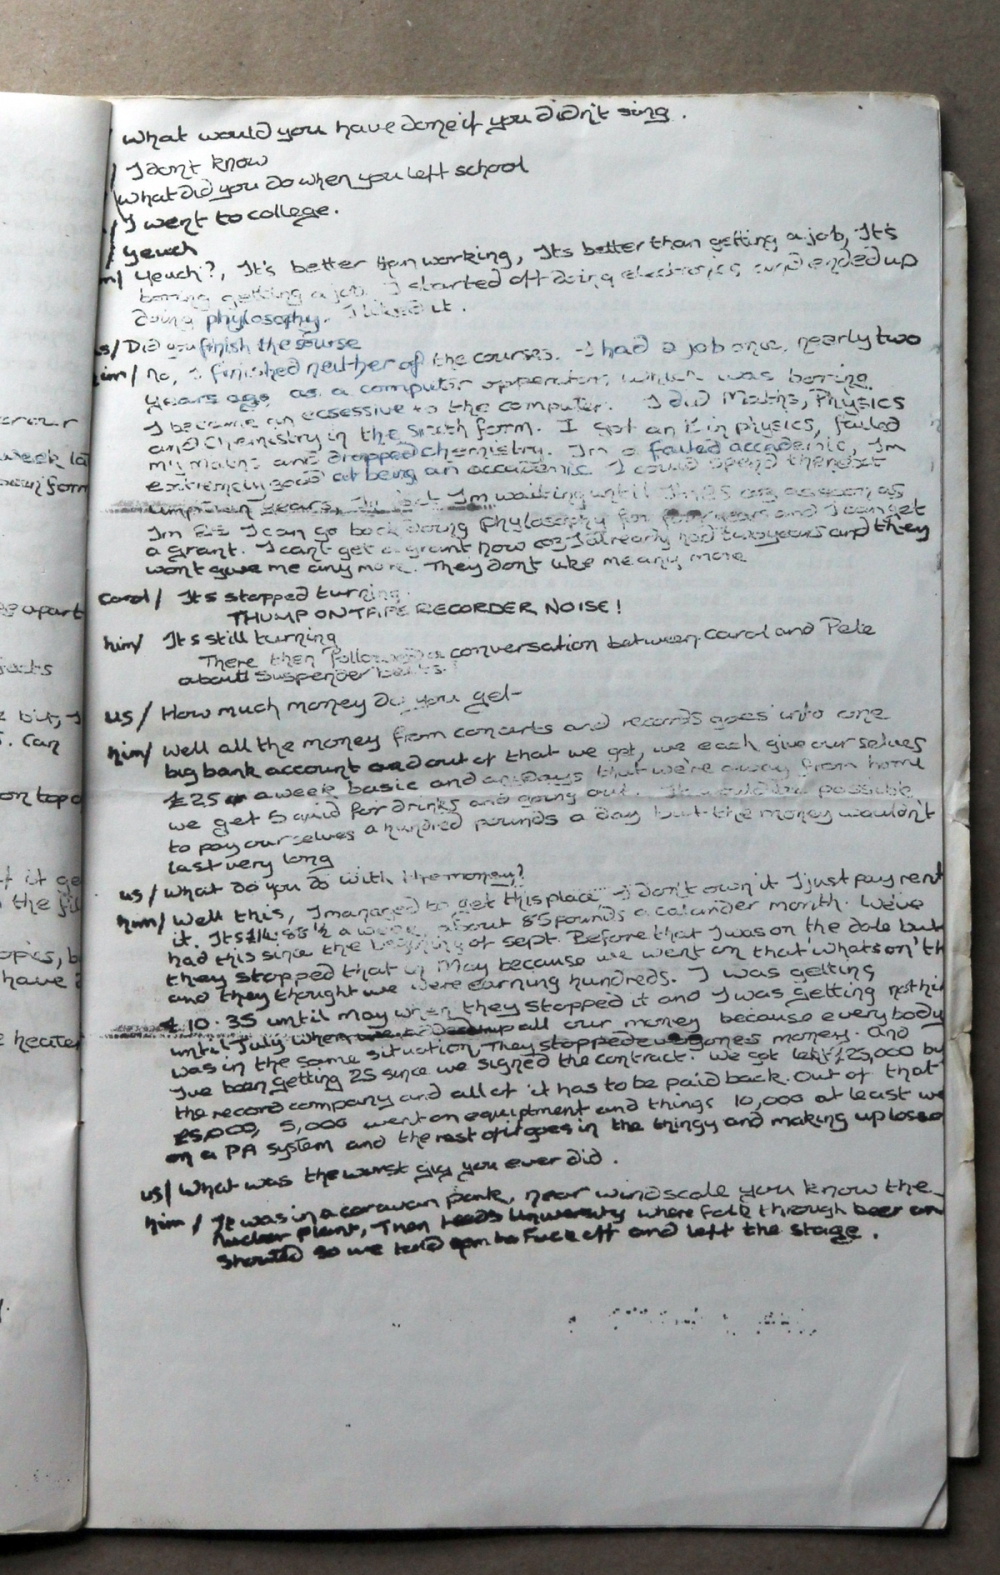 What would you have done if you didn't sing.
I dont know
What did you do when you left school
I went to college.
Yeuch
Yeuch?, It's better than working, Its better than getting a job, It's
boring getting a job. I started off doing electronics and ended up
doing phylosophy. I liked it.
us/ Did you finish the course
him/ No, I finished neither of the courses. I had a job once, nearly two
years ago, as a computer opperator, which was boring
I became an to the computer. I did Maths, Physics
and Chemistry in the sixth form. I got an in physics, failed
my maths and dropped chemistry. Im a failed accademic, Im
extremely good at being an accademic I could spend the rest
years, Im waiting until Im 25 as soon as
Im 25 I can go back doing phylosophy for years and I can get
a grant. I cant get a grant now cos I already had two years and they
wont give me any more. They dont like me any more
carol/ Its stopped turning.
THUMP ON TAPE RECORDER NOISE!
him/ It s still turning
There then follows a conversation between Carol and Pete
about Suspender belts.
us/ How much money do you get-
him/ Well all the money from concerts and records goes into one
big bank account and out of that we get, we each give our selves
£25 a week basic and any days that we're away from home
we get 5 quid for drinks and going out. It would be possible
to pay ourselves a hundred pounds a day but the money wouldn't
last very long
us/ What do you do with the money?
him/ Well this, I managed to get this place I don't own it I just pay rent
it. Its a week, about 85 pounds a calander month. We've
had this since the beginning of sept. Before that I was on the dole but
they stopped that in May because we went on that 'whats on' th
and they thought we were earning hundreds. I was getting
£10.35 until May when they stopped it and I was getting nothi
until July when all our money because everybody
was in the same situation, They stopped money. And
Ive been getting 25 since we signed the contract. We got lent £25,000 by
the record company and all of it has to be paid back. Out of that
£5,000, 5,000 went on equiptment and things 10,000 at least we
on a PA system and the rest of it goes in the thingy and making up losse
us/ What was the worst gig you ever did.
him/ It was in a caravan park, near windscale you know the
nuclear plant, Then Leeds University where folk through beer an
shouted so we told em to Fuck off and left the stage.